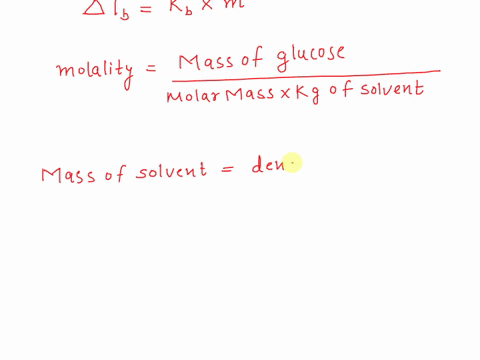 ΔT_b = K_b × m
molality = Mass of glucose
Molar Mass × Kg of solvent
Mass of solvent = den